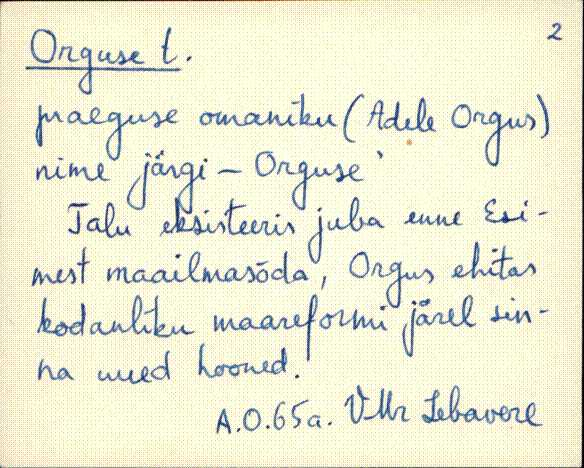 2
Orguse t.
praeguse omaniku (Adele Orgus)
nime järgi – Orguse'
Talu eksisteeris juba enne Esi-
mest maailmasõda, Orgus ehitas
kodanliku maareformi järel sin-
na uued hooned.
A.O. 65a. VMr Lebavere